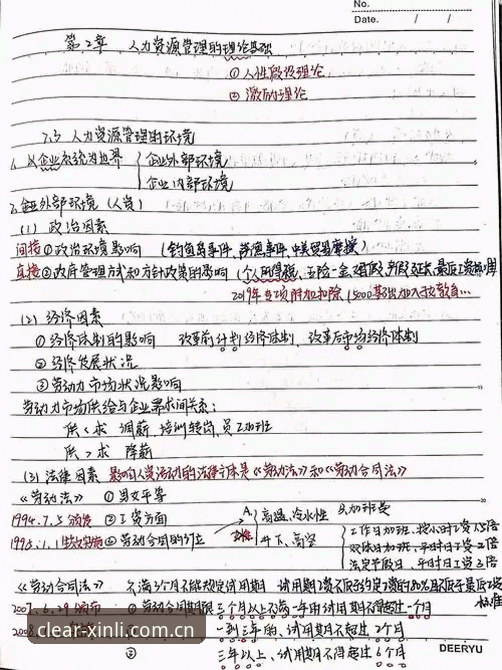 No.
Date. / /
第2章 人力资源管理的理论基础
①人性假设理论
②激励理论
2.3 人力资源管理的环境
1. 以企业系统为边界 { 企业外部环境
企业内部环境
2. 企业外部环境(人资)
(1) 政治因素
间接 ①政治环境影响 (钓鱼岛事件、萨德事件、中美贸易摩擦)
直接 ②政府管理方式和方针政策的影响 (个人所得税、五险一金、婚假、产假延长、最后工资
2019年专项附加扣除 (5000基础加入孩教育…
(2) 经济因素
①经济体制的影响 改革前计划经济体制、改革后市场经济体制
②经济发展状况
③劳动力市场状况影响
劳动力市场供给与企业需求间关系:
供<求 调薪、培训转岗、员工加班
供>求 降薪
(3) 法律因素 影响人资活动的法律主体是《劳动法》和《劳动合同法》
《劳动法》 ①男女平等
A. { 高温、冷水性 B.加班费
1994.7.5 颁发 ②工资方面
井下、高空
工作日加班,按小时工资1.5倍
1995.1.1 ③劳动合同的订立
双休日加班,平时日子工资2倍
法定节假日,平时日子工资3倍
《劳动合同法》 不满3个月不能规定试用期 试用期工资不低于约定工资的80%且不低于最低工资标准
2007.6.29 颁布 ①劳动合同期限三个月以上不满一年 试用期不得超过一个月
2008. 一到三年的、试用期不超过2个月
③ 三年以上、试用期不得超过6个月
clear-xinli.com.cn
DEERYU